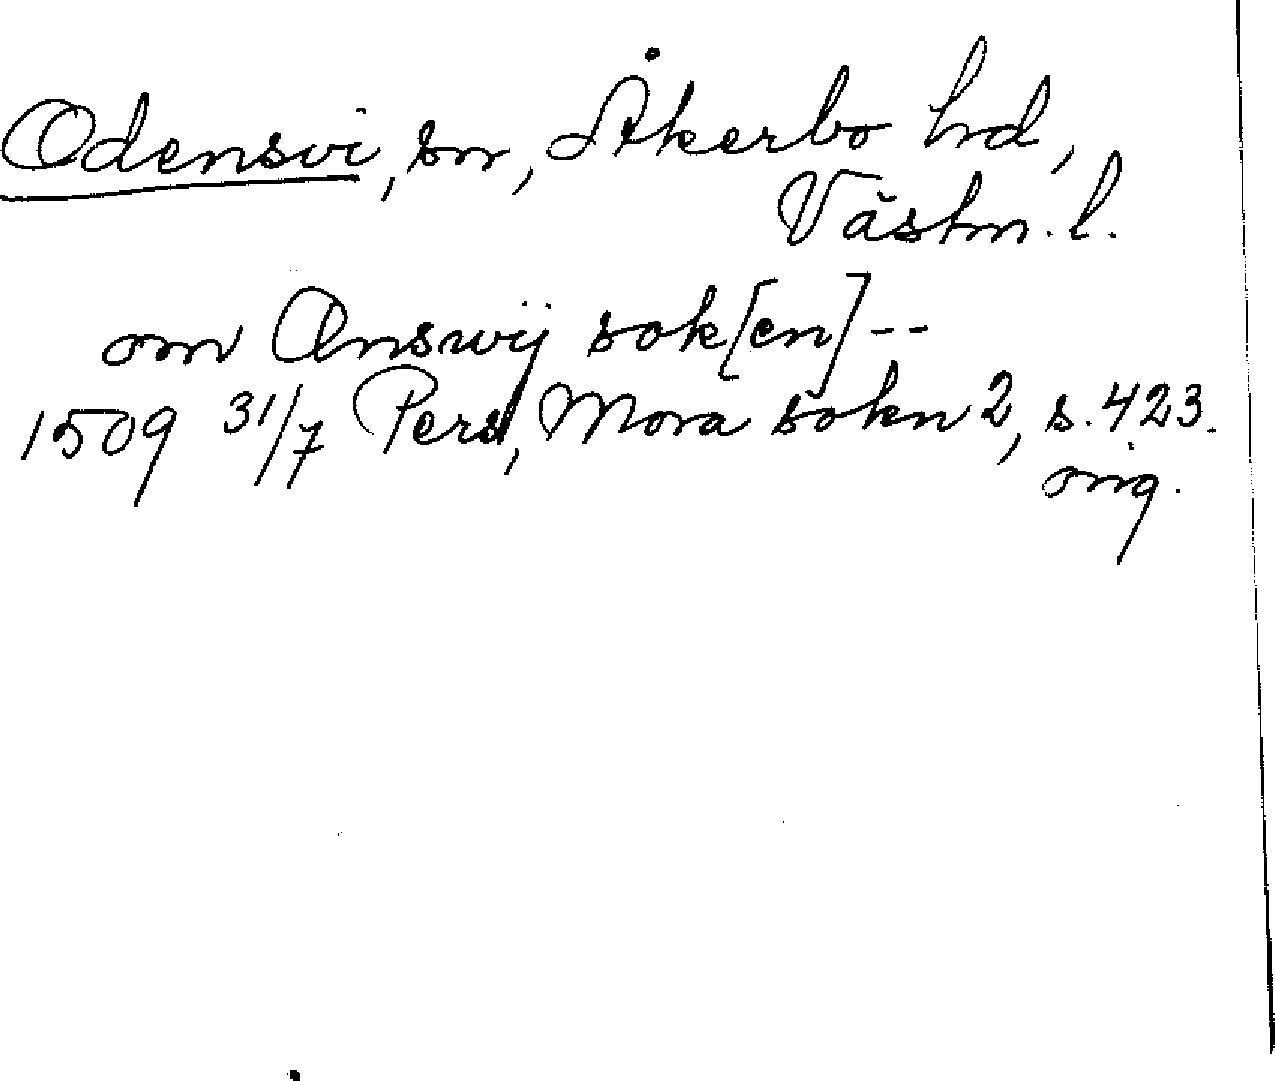 Odensvi, sn, Åkerbo hd,
Västm. l.
om Onswij sok[en] --
1509 31/7 Pers, Mora sokn 2, s. 423.
orig.